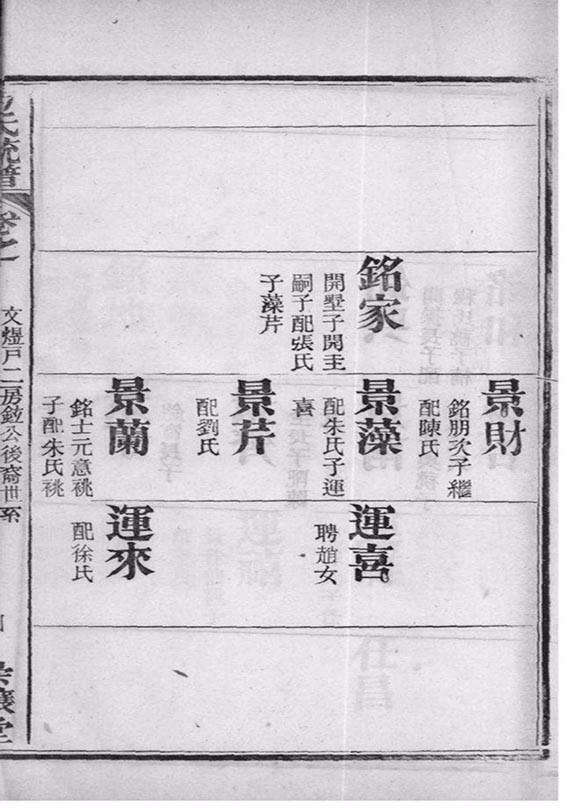 銘家
開墅子開圭
嗣子配張氏
子藻芹
景財
銘朋次子繼
配陳氏
景藻
配朱氏子運
喜
景芹
配劉氏
景蘭
銘士元意祧
子配朱氏祧
運喜
聘趙女
運來
配徐氏
氏統譜
卷之一
文煜戶二房敘公後裔世系